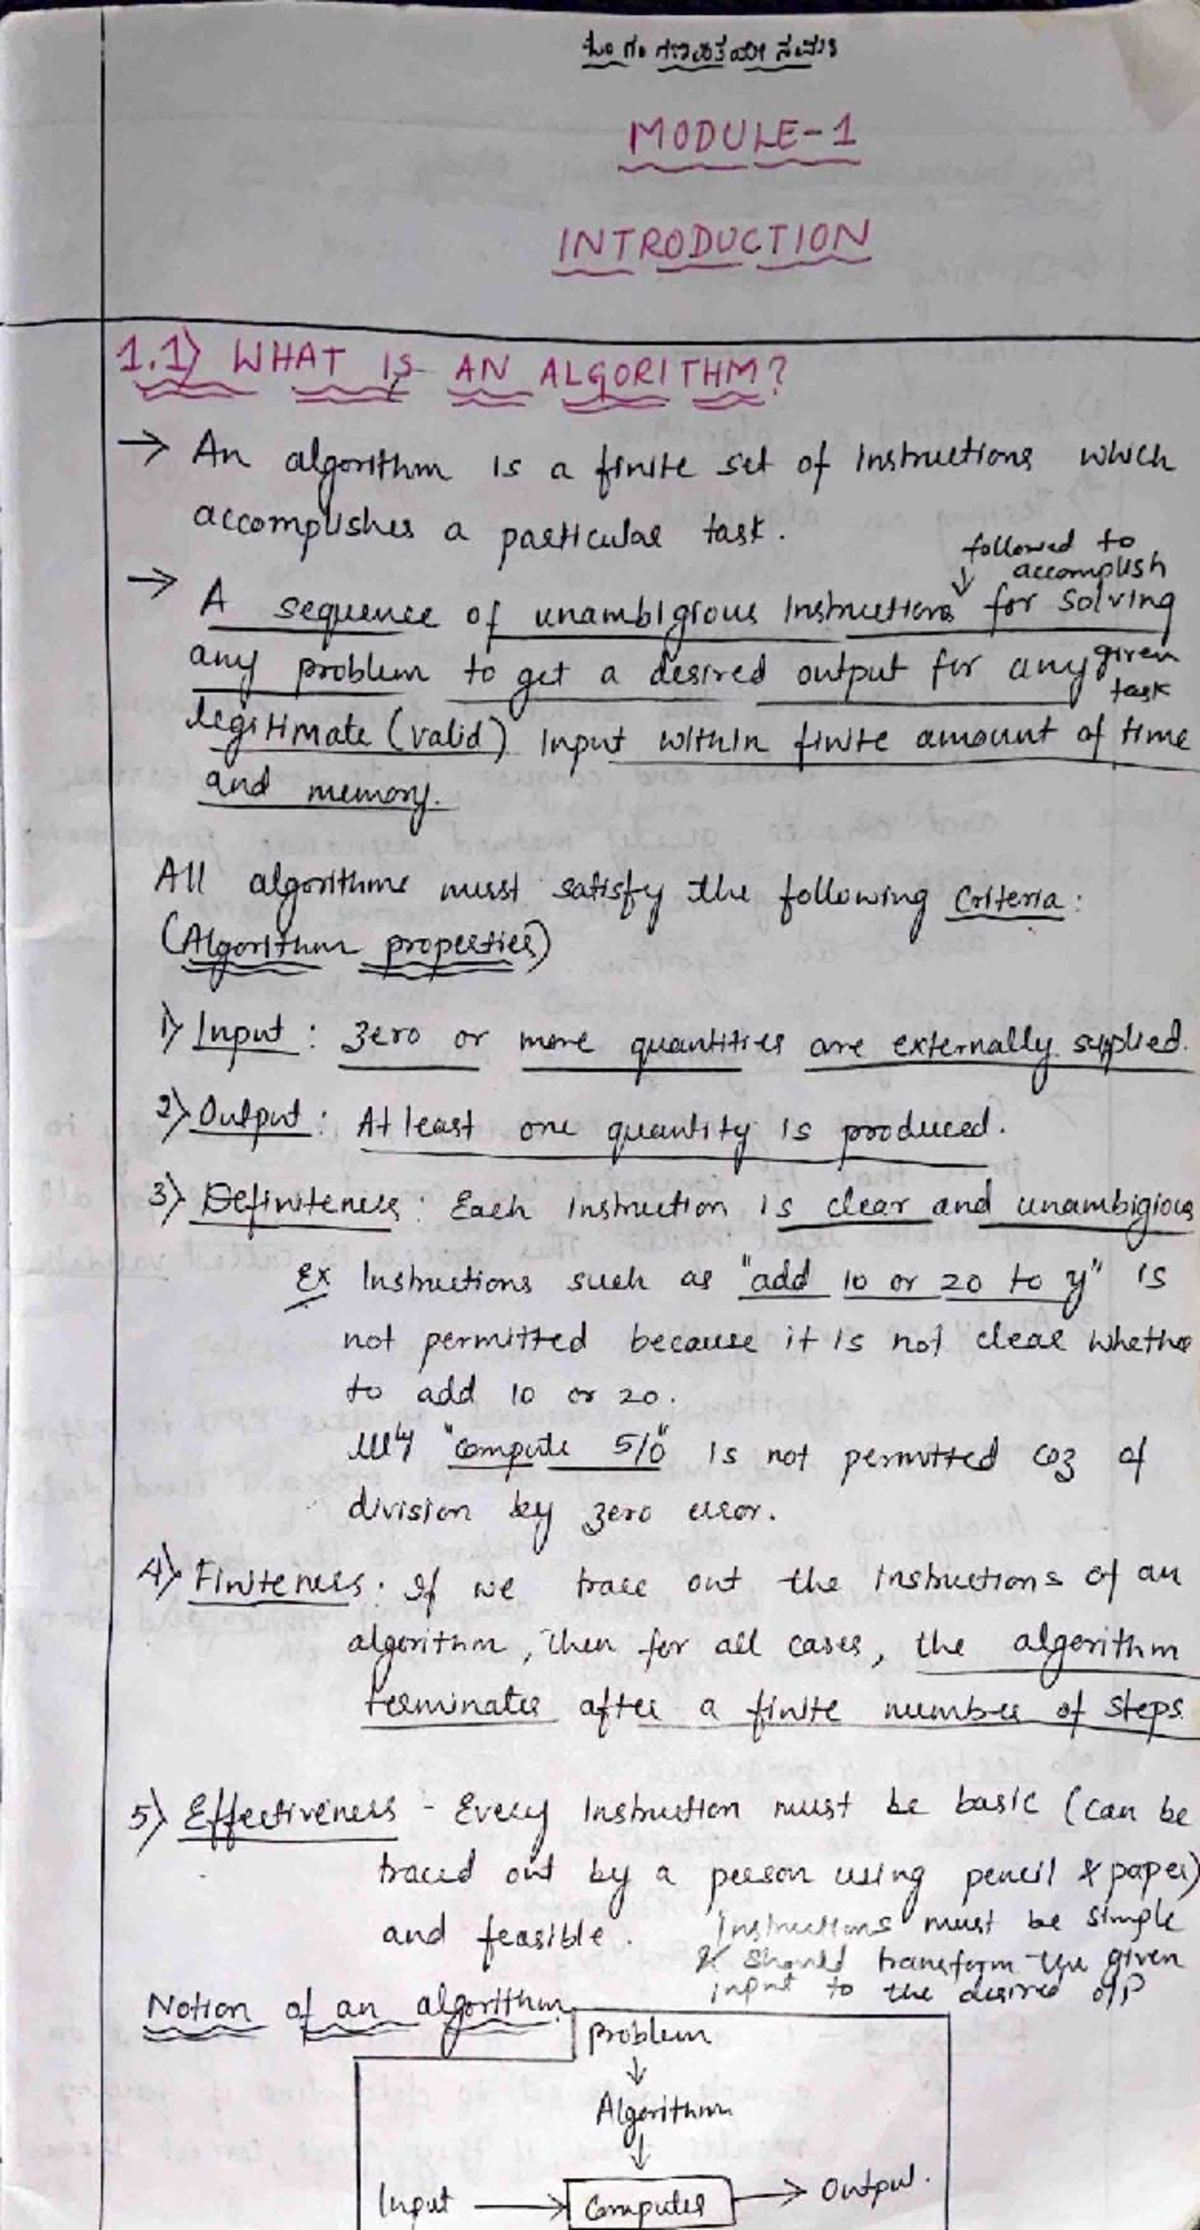 ಓಂ ಗಂ ಗಣಪತಯೇ ನಮಃ
MODULE-1
INTRODUCTION
1.1) WHAT IS AN ALGORITHM?
→ An algorithm is a finite set of instructions which
accomplishes a particular task.
followed to
↓ accomplish
→ A sequence of unambigious instructions for solving
any problem to get a desired output for any given
task
legitimate (valid) input within finite amount of time
and memory.
All algorithms must satisfy the following criteria:
(Algorithm properties)
1) Input : zero or more quantities are externally supplied.
2) Output : At least one quantity is produced.
3) Definiteness : Each instruction is clear and unambigious
Ex Instructions such as "add 10 or 20 to y" is
not permitted because it is not clear whether
to add 10 or 20.
|||ly "compute 5/0" is not permitted coz of
division by zero error.
4) Finiteness : If we trace out the instructions of an
algorithm, then for all cases, the algorithm
terminates after a finite number of steps.
5) Effectiveness - Every instruction must be basic (can be
traced out by a person using pencil & paper)
and feasible. Instructions must be simple
& should transform the given
input to the desired o/p
Notion of an algorithm
Problem
↓
Algorithm
↓
Input → Computer → Output.